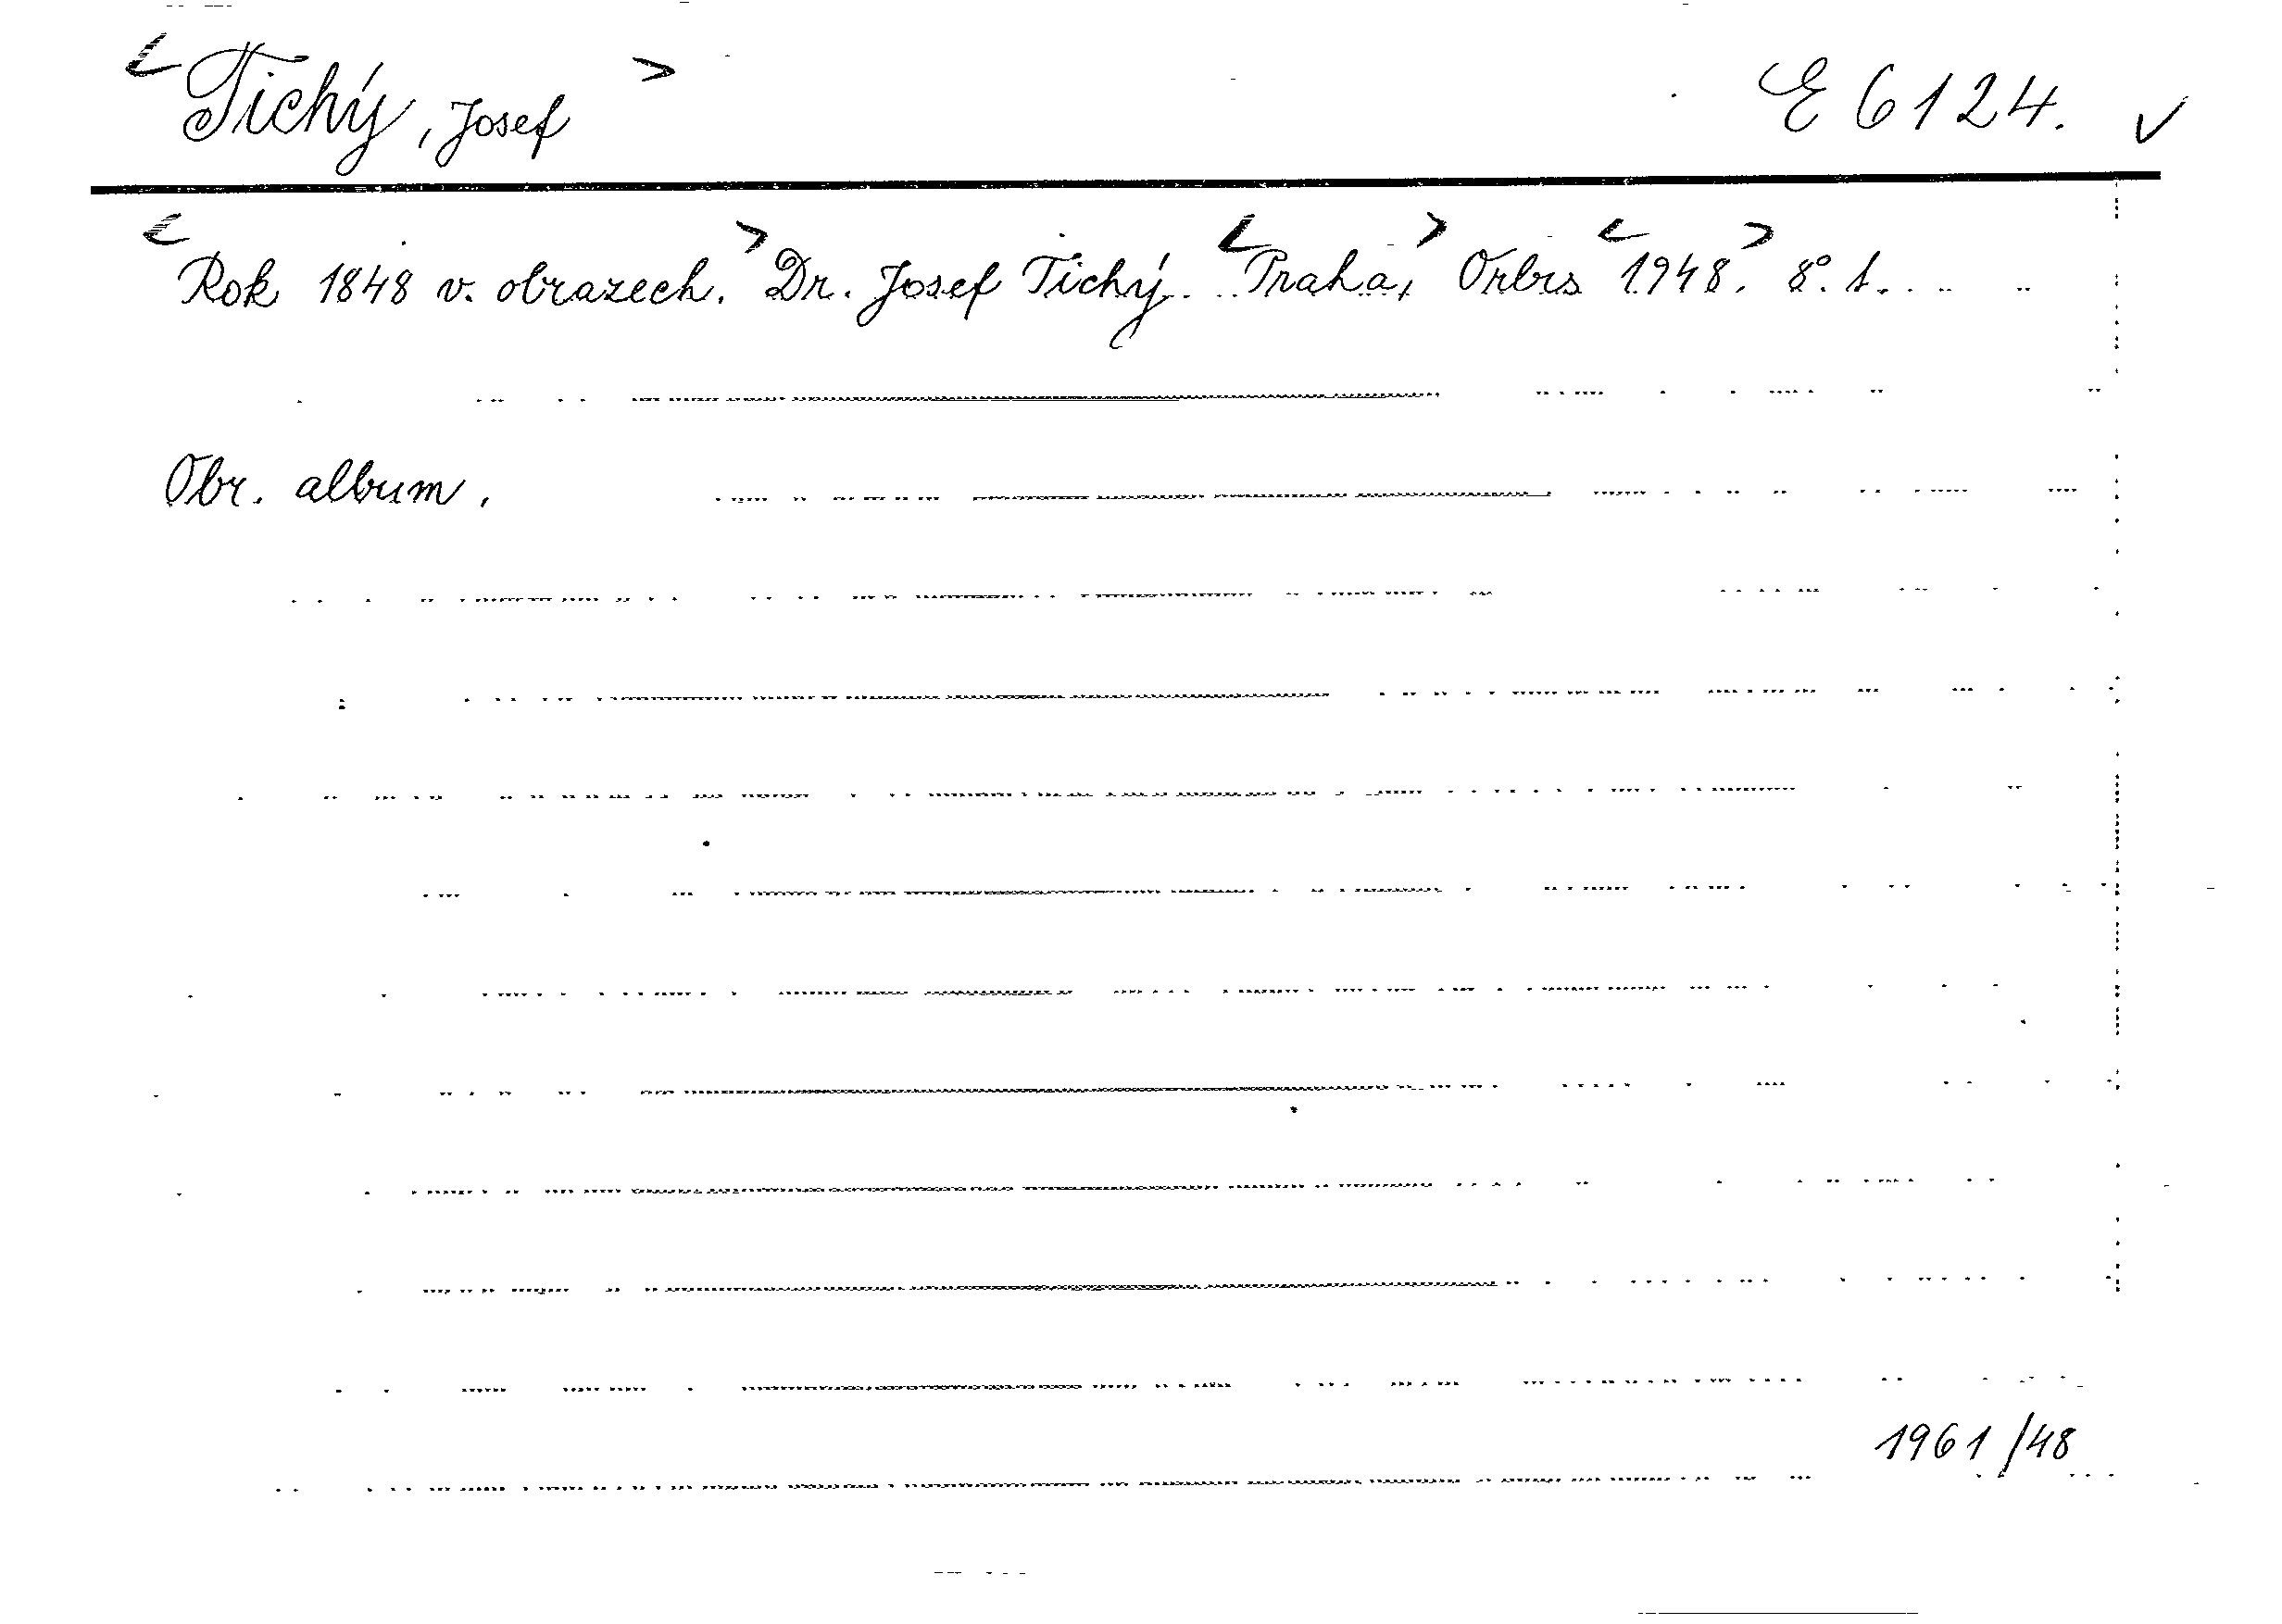 <Tichý, Josef> E 6124. ✓
<Rok 1848 v obrazech.> Dr. Josef Tichý. <Praha,> Orbis <1948.> 8°. 1.
Obr. album.
1961/48